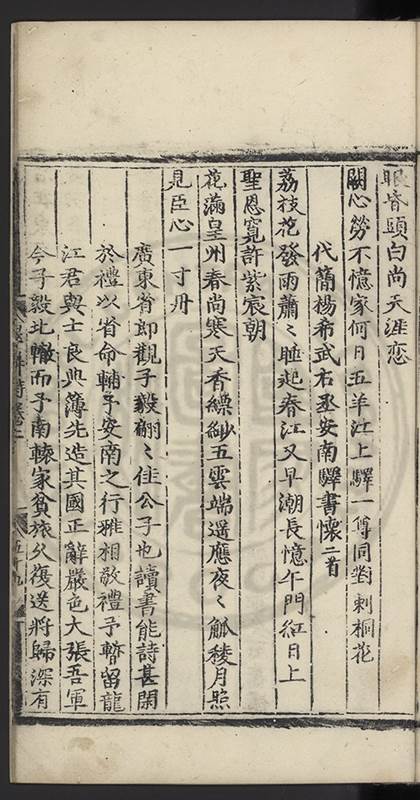 眼昏頭白尚天涯恋
關心勞不憶家何日五羊江上驛一尊同對刺桐花
代簡楊希武右丞安南驛書懷二首
荔枝花發雨蕭〻睡起春江又早潮長憶午門紅日上
聖恩寬許紫宸朝
花滿皇州春尚寒天香縹緲五雲端遥應夜〻觚稜月照
見臣心一寸丹
廣東省郎觀子毅翩〻佳公子也讀書能詩甚閑
於禮以省命輔予安南之行雅相敬禮予暫留龍
江君與士良典簿先造其國正辭嚴色大張吾軍
今子毅北轍而予南轅家貧旅久復送將歸深有